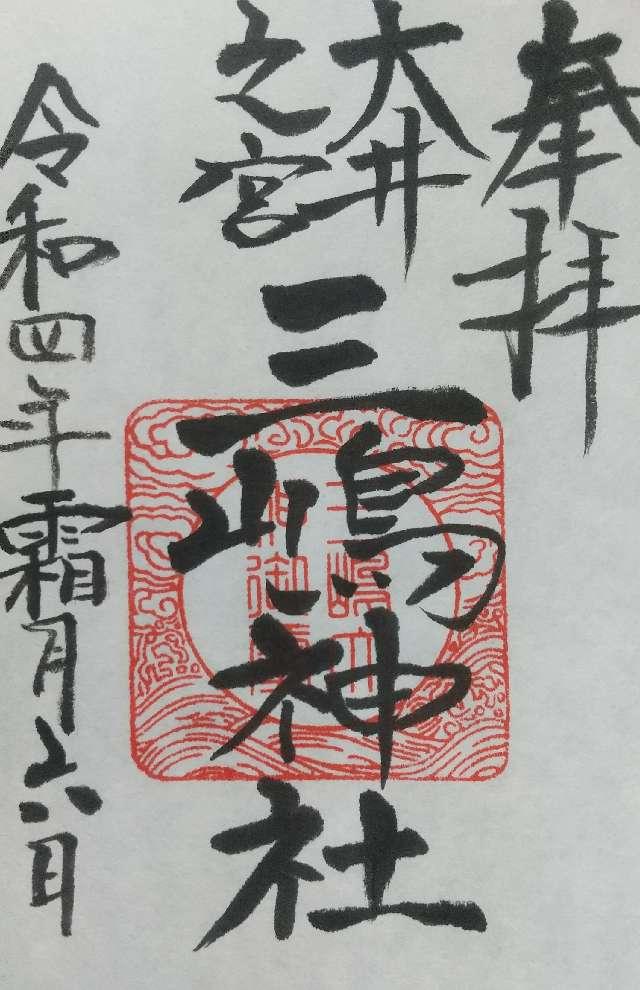 奉拝
大井
之宮
三嶋神社
令和四年霜月六日